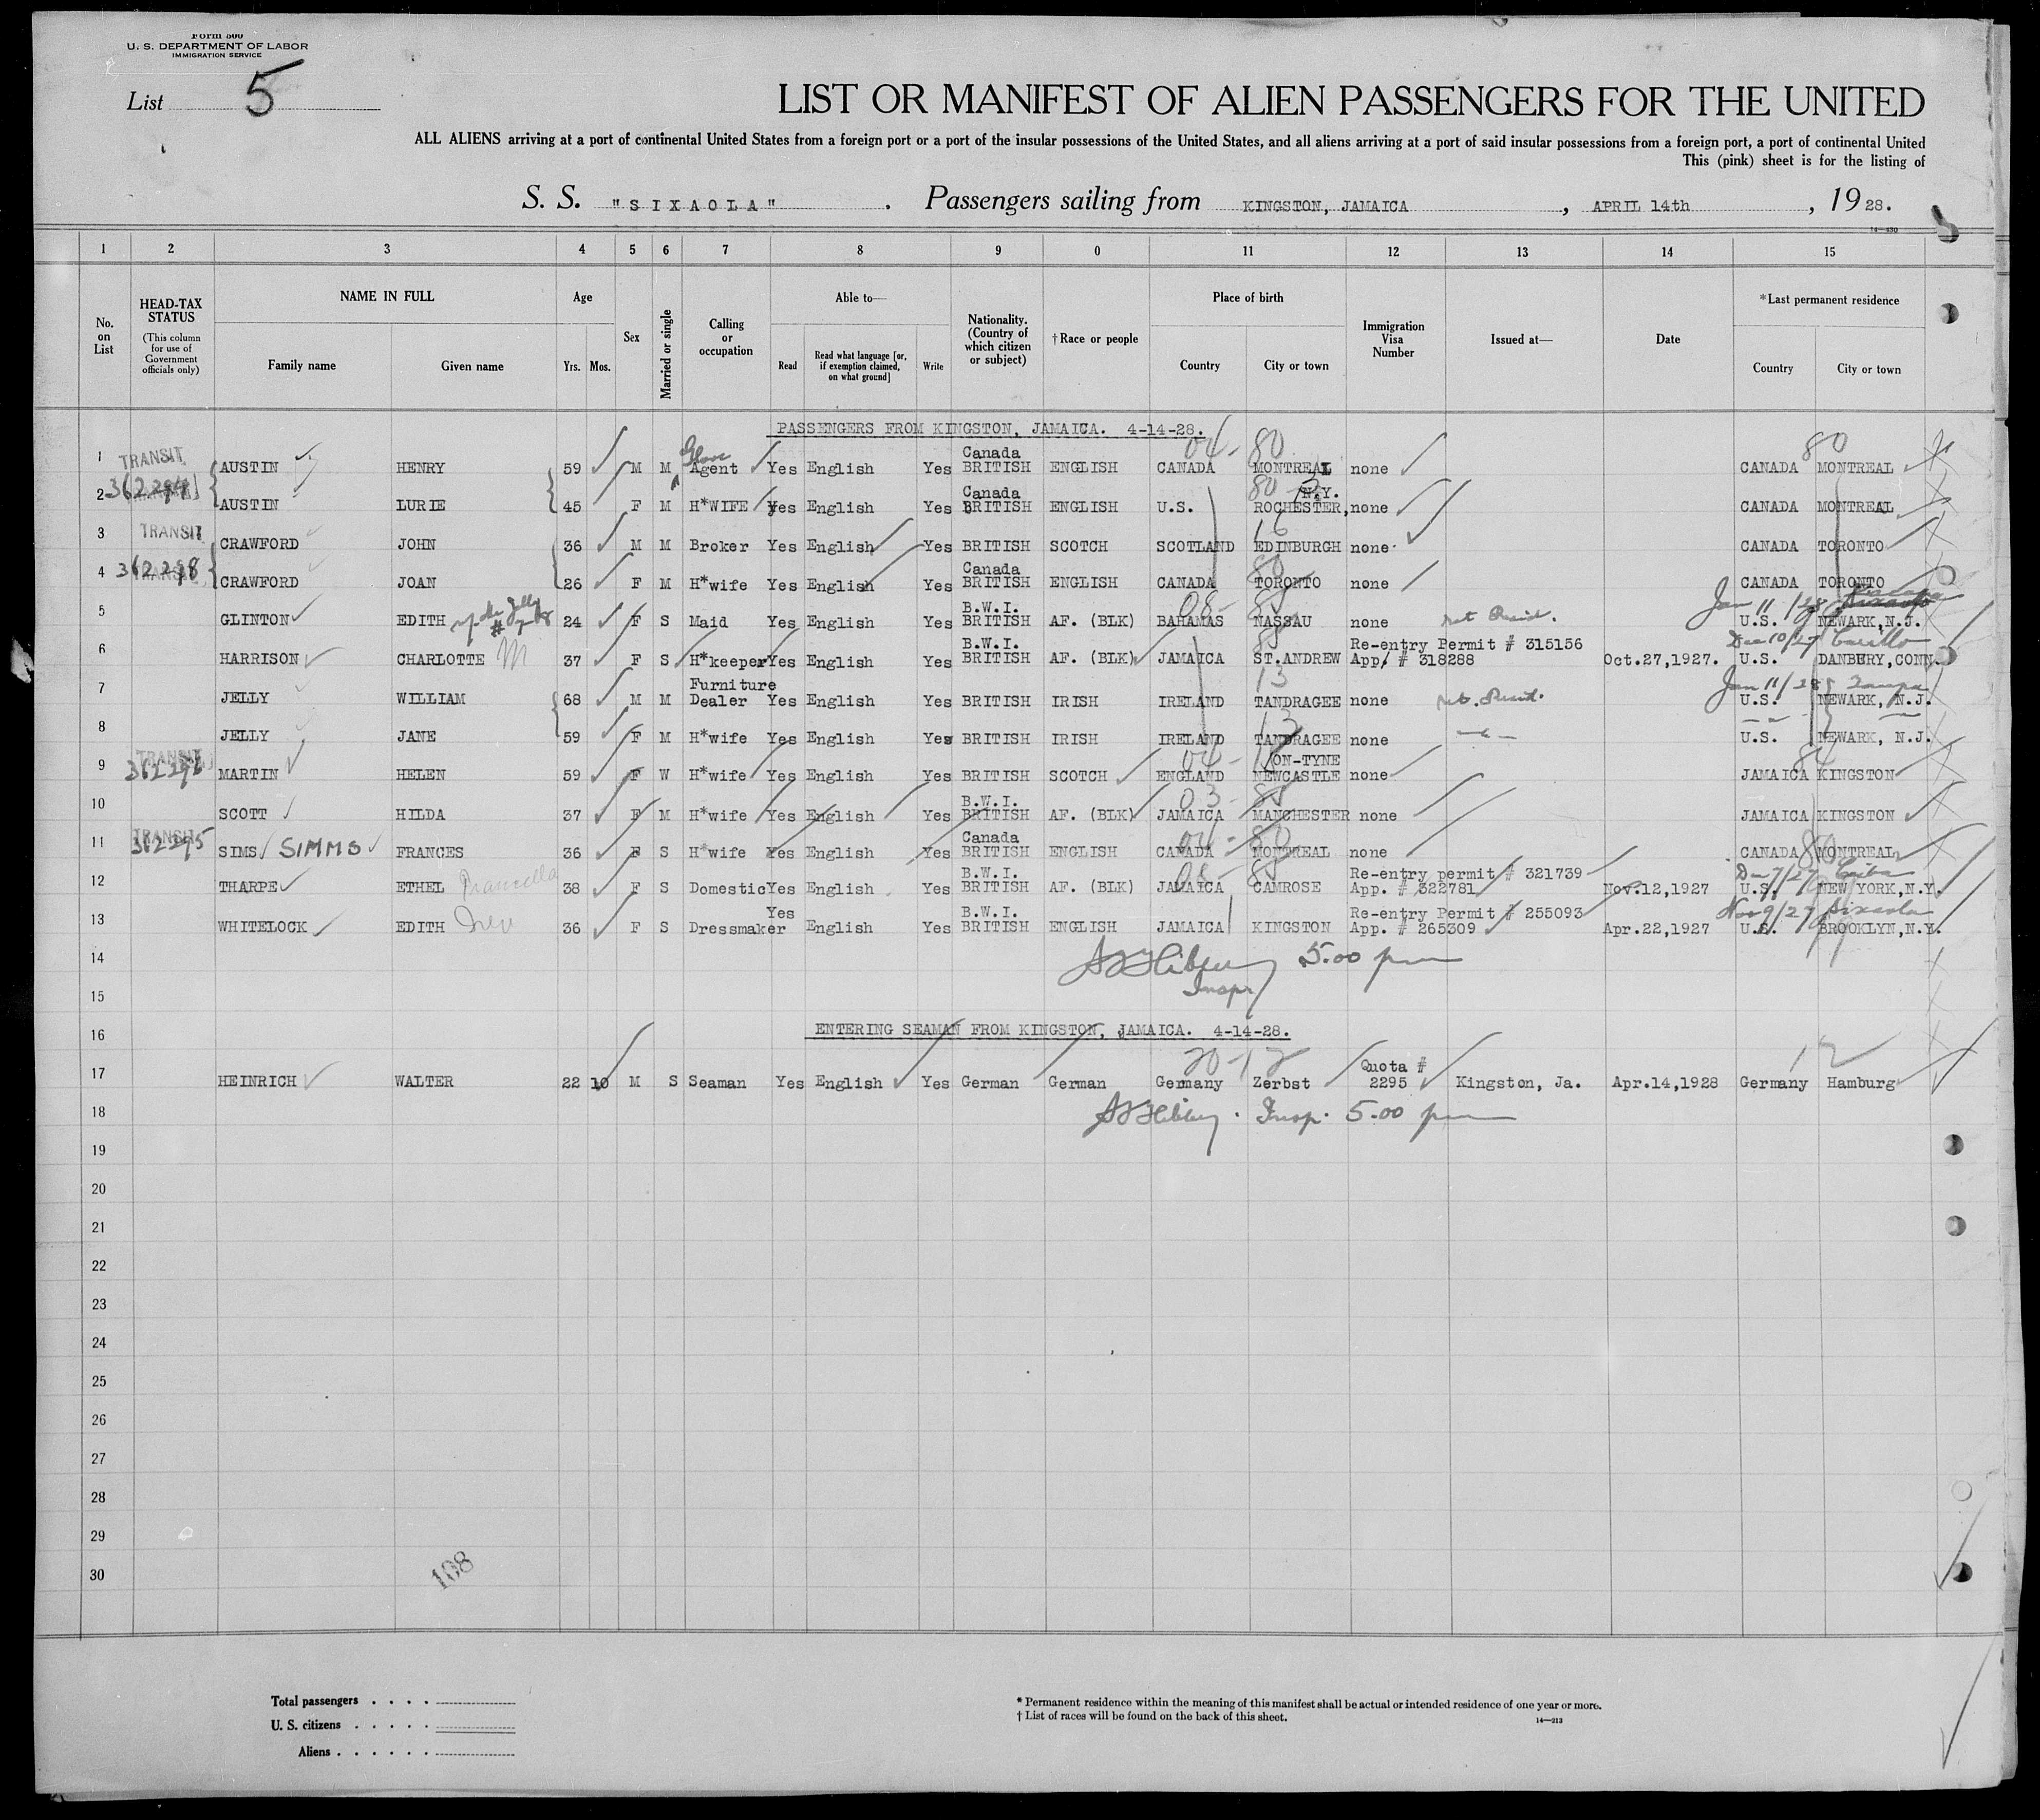 Form 500
U. S. DEPARTMENT OF LABOR
IMMIGRATION SERVICE
List 5
LIST OR MANIFEST OF ALIEN PASSENGERS FOR THE UNITED
ALL ALIENS arriving at a port of continental United States from a foreign port or a port of the insular possessions of the United States, and all aliens arriving at a port of said insular possessions from a foreign port, a port of continental United
This (pink) sheet is for the listing of
S. S. "SIXAOLA". Passengers sailing from KINGSTON, JAMAICA, APRIL 14th, 1928.
1 2 3 4 5 6 7 8 9 0 11 12 13 14 15
No. on List
HEAD-TAX STATUS (This column for use of Government officials only)
NAME IN FULL Family name Given name
Age Yrs. Mos.
Sex
Married or single
Calling or occupation
Able to— Read Read what language [or, if exemption claimed, on what ground] Write
Nationality. (Country of which citizen or subject)
†Race or people
Place of birth Country City or town
Immigration Visa Number
Issued at—
Date
*Last permanent residence Country City or town
PASSENGERS FROM KINGSTON, JAMAICA. 4-14-28.
04- 80 80
1 TRANSIT AUSTIN HENRY 59 M M Glove Agent Yes English Yes Canada BRITISH ENGLISH CANADA MONTREAL none CANADA MONTREAL
2 362294 AUSTIN LURIE 45 F M H*WIFE Yes English Yes Canada BRITISH ENGLISH U.S. ROCHESTER, N.Y. none CANADA MONTREAL
3 TRANSIT CRAWFORD JOHN 36 M M Broker Yes English Yes BRITISH SCOTCH SCOTLAND EDINBURGH none CANADA TORONTO
4 362298 CRAWFORD JOAN 26 F M H*wife Yes English Yes Canada BRITISH ENGLISH CANADA TORONTO none CANADA TORONTO
5 GLINTON EDITH 24 F S Maid Yes English Yes B.W.I. BRITISH AF. (BLK) BAHAMAS NASSAU none Jan 11/28 U.S. NEWARK, N.J.
6 HARRISON CHARLOTTE M 37 F S H*keeper Yes English Yes B.W.I. BRITISH AF. (BLK) JAMAICA ST.ANDREW Re-entry Permit # 315156 App. # 318288 Oct.27,1927. Dec 10/27 U.S. DANBURY, CONN.
7 JELLY WILLIAM 68 M M Furniture Dealer Yes English Yes BRITISH IRISH IRELAND TANDRAGEE none Jan 11/28 U.S. NEWARK, N.J.
8 JELLY JANE 59 F M H*wife Yes English Yes BRITISH IRISH IRELAND TANDRAGEE none U.S. NEWARK, N.J.
9 TRANSIT MARTIN HELEN 59 F W H*wife Yes English Yes BRITISH SCOTCH ENGLAND ON-TYNE NEWCASTLE none JAMAICA KINGSTON
10 SCOTT HILDA 37 F M H*wife Yes English Yes B.W.I. BRITISH AF. (BLK) JAMAICA MANCHESTER none JAMAICA KINGSTON
11 TRANSIT 362295 SIMS SIMMS FRANCES 36 F S H*wife Yes English Yes Canada BRITISH ENGLISH CANADA MONTREAL none CANADA MONTREAL
12 THARPE ETHEL 38 F S Domestic Yes English Yes B.W.I. BRITISH AF. (BLK) JAMAICA CAMROSE Re-entry permit # 321739 App. # 322781 Nov.12,1927 U.S. NEW YORK, N.Y.
13 WHITELOCK EDITH 36 F S Dressmaker Yes English Yes B.W.I. BRITISH ENGLISH JAMAICA KINGSTON Re-entry Permit # 255093 App. # 265309 Apr.22,1927 Nov 9/27 Sixaola U.S. BROOKLYN, N.Y.
14 5.00 pm
15 Inspr
16 ENTERING SEAMAN FROM KINGSTON, JAMAICA. 4-14-28.
17 HEINRICH WALTER 22 10 M S Seaman Yes English Yes German German Germany Zerbst Quota # 2295 Kingston, Ja. Apr.14,1928 Germany Hamburg
18 Insp. 5.00 pm
19
20
21
22
23
24
25
26
27
28
29
30
108
Total passengers
U. S. citizens
Aliens
* Permanent residence within the meaning of this manifest shall be actual or intended residence of one year or more.
† List of races will be found on the back of this sheet.
14—213